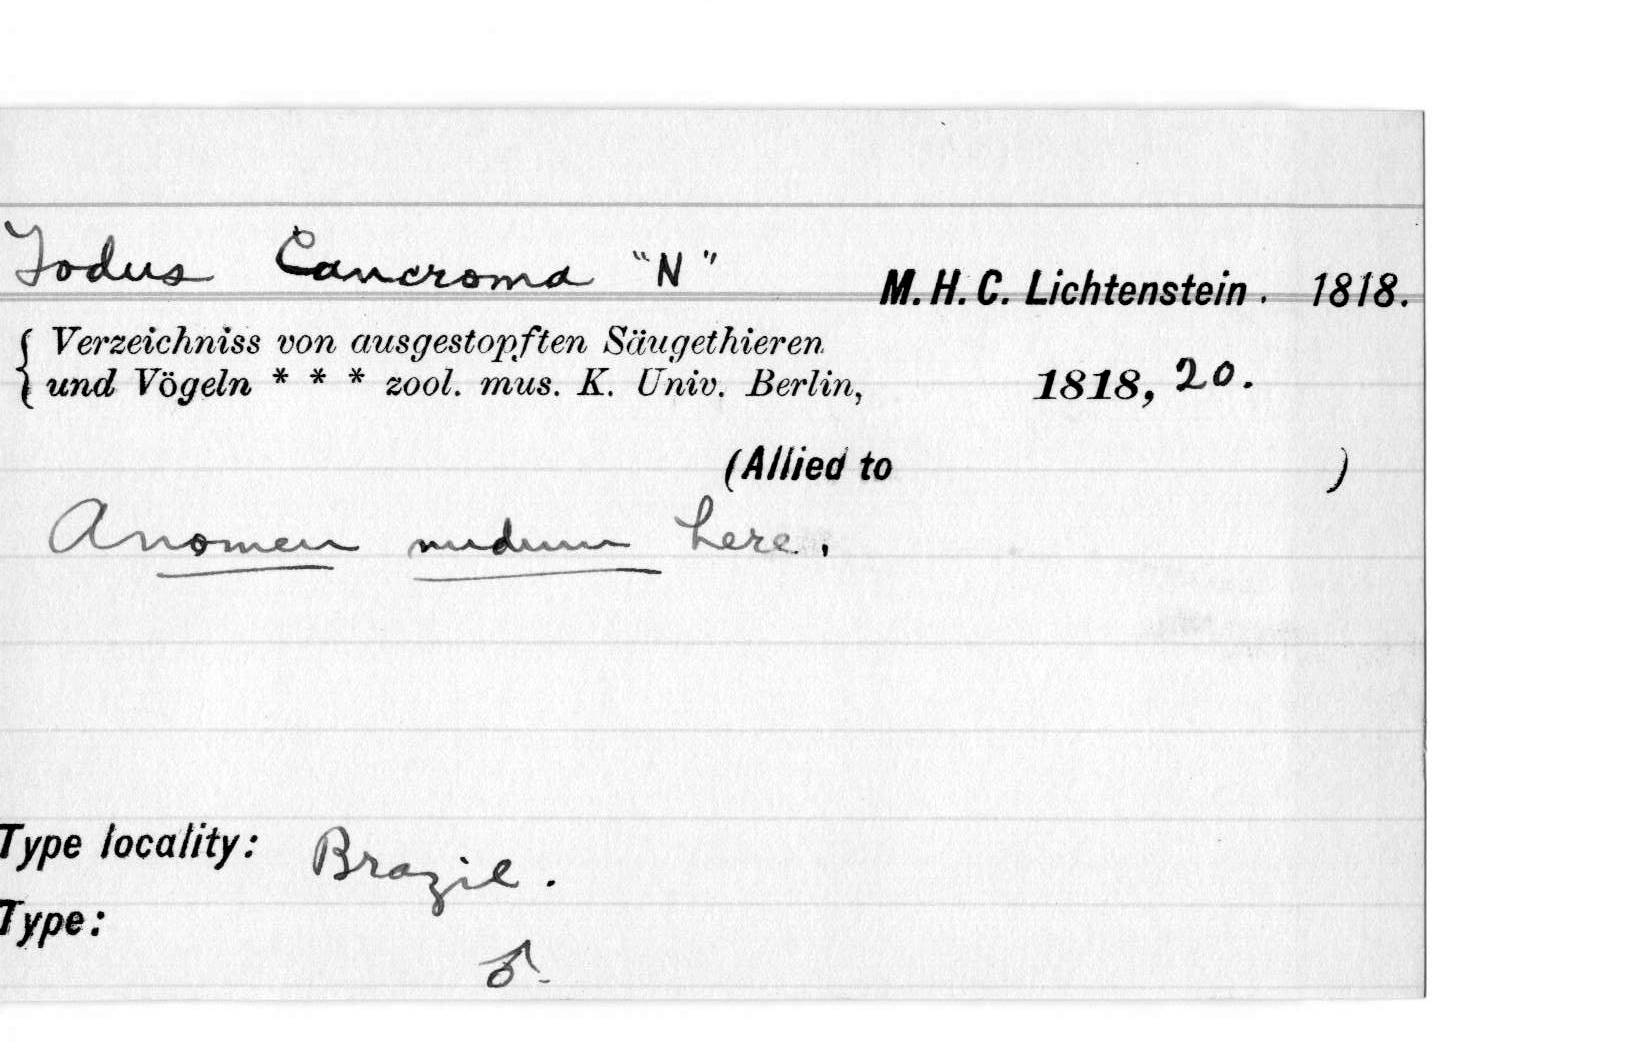 Todus Cancroma "N" M. H. C. Lichtenstein. 1818.
{ Verzeichniss von ausgestopften Säugethieren
und Vögeln * * * zool. mus. K. Univ. Berlin, 1818, 20.
(Allied to )
A nomen nudum here.
Type locality: Brazil.
Type:
♂